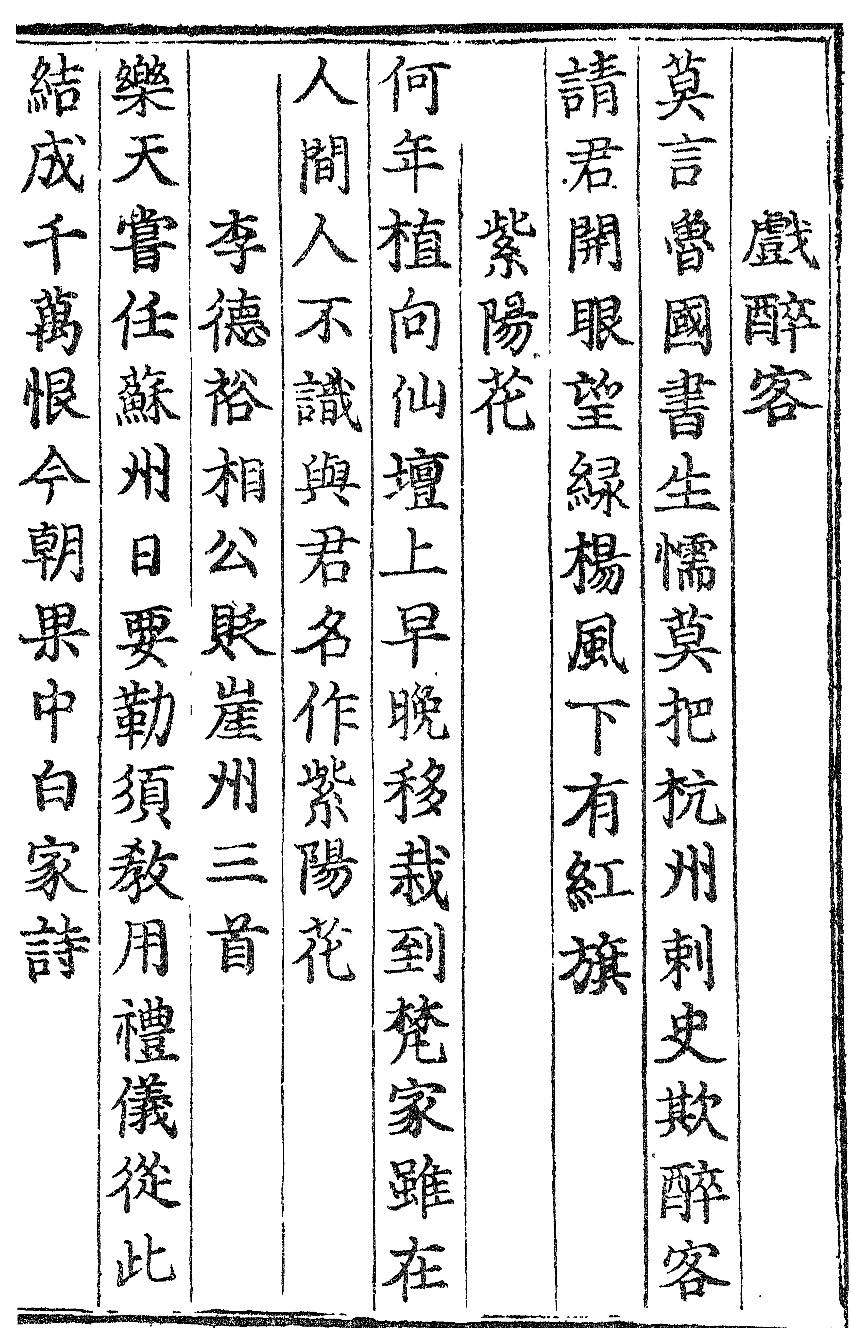 戲醉客
莫言魯國書生懦莫把杭州刺史欺醉客
請君開眼望緑楊風下有紅旗
紫陽花
何年植向仙壇上早晚移栽到梵家雖在
人間人不識與君名作紫陽花
李德裕相公貶崖州三首
樂天嘗任蘇州日要勒須教用禮儀從此
結成千萬恨今朝果中白家詩